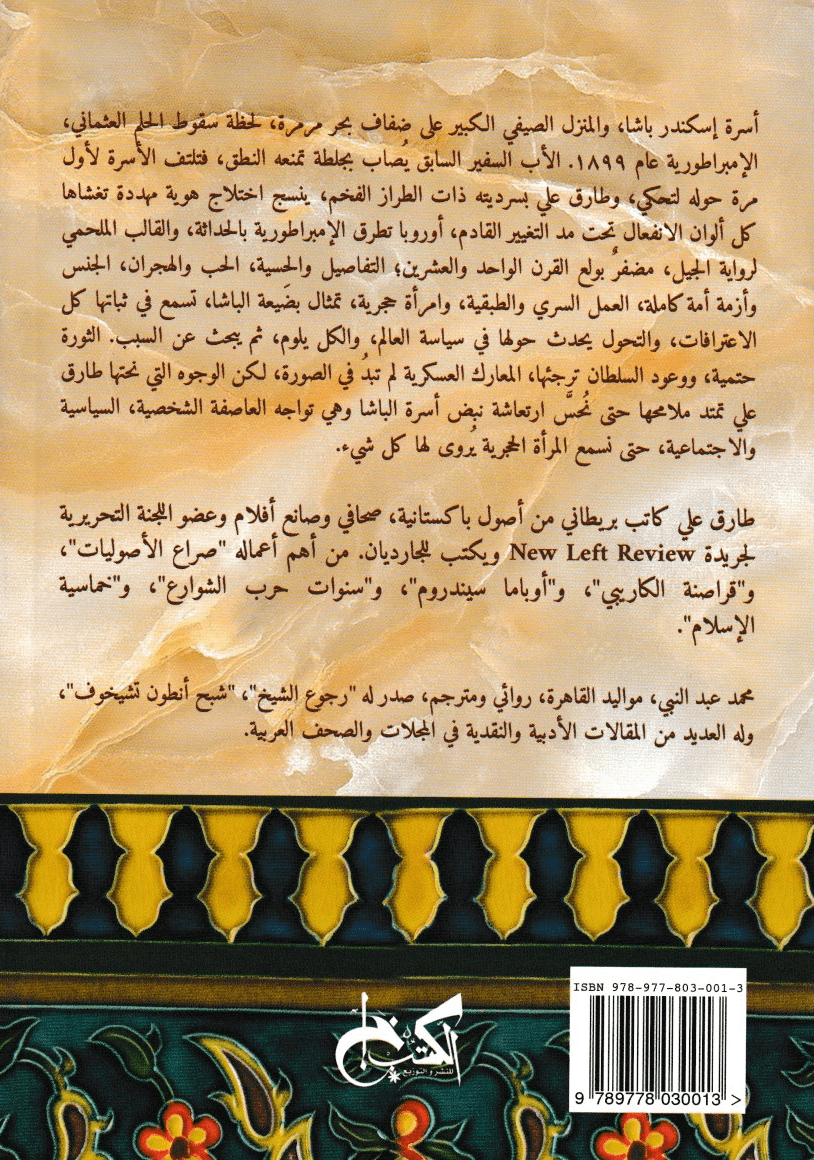 أسرة إسكندر باشا، والمنزل الصيفي الكبير على ضفاف بحر مرمرة، لحظة سقوط الحلم العثماني،
الإمبراطورية عام ١٨٩٩. الأب السفير السابق يُصاب بجلطة تمنعه النطق، فتلتف الأسرة لأول
مرة حوله لتحكي، وطارق علي بسرديته ذات الطراز الفخم، ينسج اختلاج هوية مهددة تغشاها
كل ألوان الانفعال تحت مد التغيير القادم، أوروبا تطرق الإمبراطورية بالحداثة، والقالب الملحمي
لرواية الجيل، مضفرٌ بولع القرن الواحد والعشرين؛ التفاصيل والحِسية، الحب والهجران، الجنس
وأزمة أمة كاملة، العمل السري والطبقية، وامرأة حجرية، تمثال بضَيعة الباشا، تسمع في ثباتها كل
الاعترافات، والتحول يحدث حولها في سياسة العالم، والكل يلوم، ثم يبحث عن السبب. الثورة
حتمية، ووعود السلطان ترجئها، المعارك العسكرية لم تبدُ في الصورة، لكن الوجوه التي نحتها طارق
علي تمتد ملامحها حتى نُحسَّ ارتعاشة نبض أسرة الباشا وهي تواجه العاصفة الشخصية، السياسية
والاجتماعية، حتى نسمع المرأة الحجرية يُروى لها كل شيء.
طارق علي كاتب بريطاني من أصول باكستانية، صحافي وصانع أفلام وعضو اللجنة التحريرية
لجريدة New Left Review ويكتب للجارديان. من أهم أعماله "صراع الأصوليات"،
و"قراصنة الكاريبي"، و"أوباما سيندروم"، و"سنوات حرب الشوارع"، و"خماسية
الإسلام".
محمد عبد النبي، مواليد القاهرة، روائي ومترجم، صدر له "رجوع الشيخ"، "شبح أنطون تشيخوف"،
وله العديد من المقالات الأدبية والنقدية في المجلات والصحف العربية.
ISBN 978-977-803-001-3
الكتب خان
للنشر والتوزيع
9 789778 030013 >